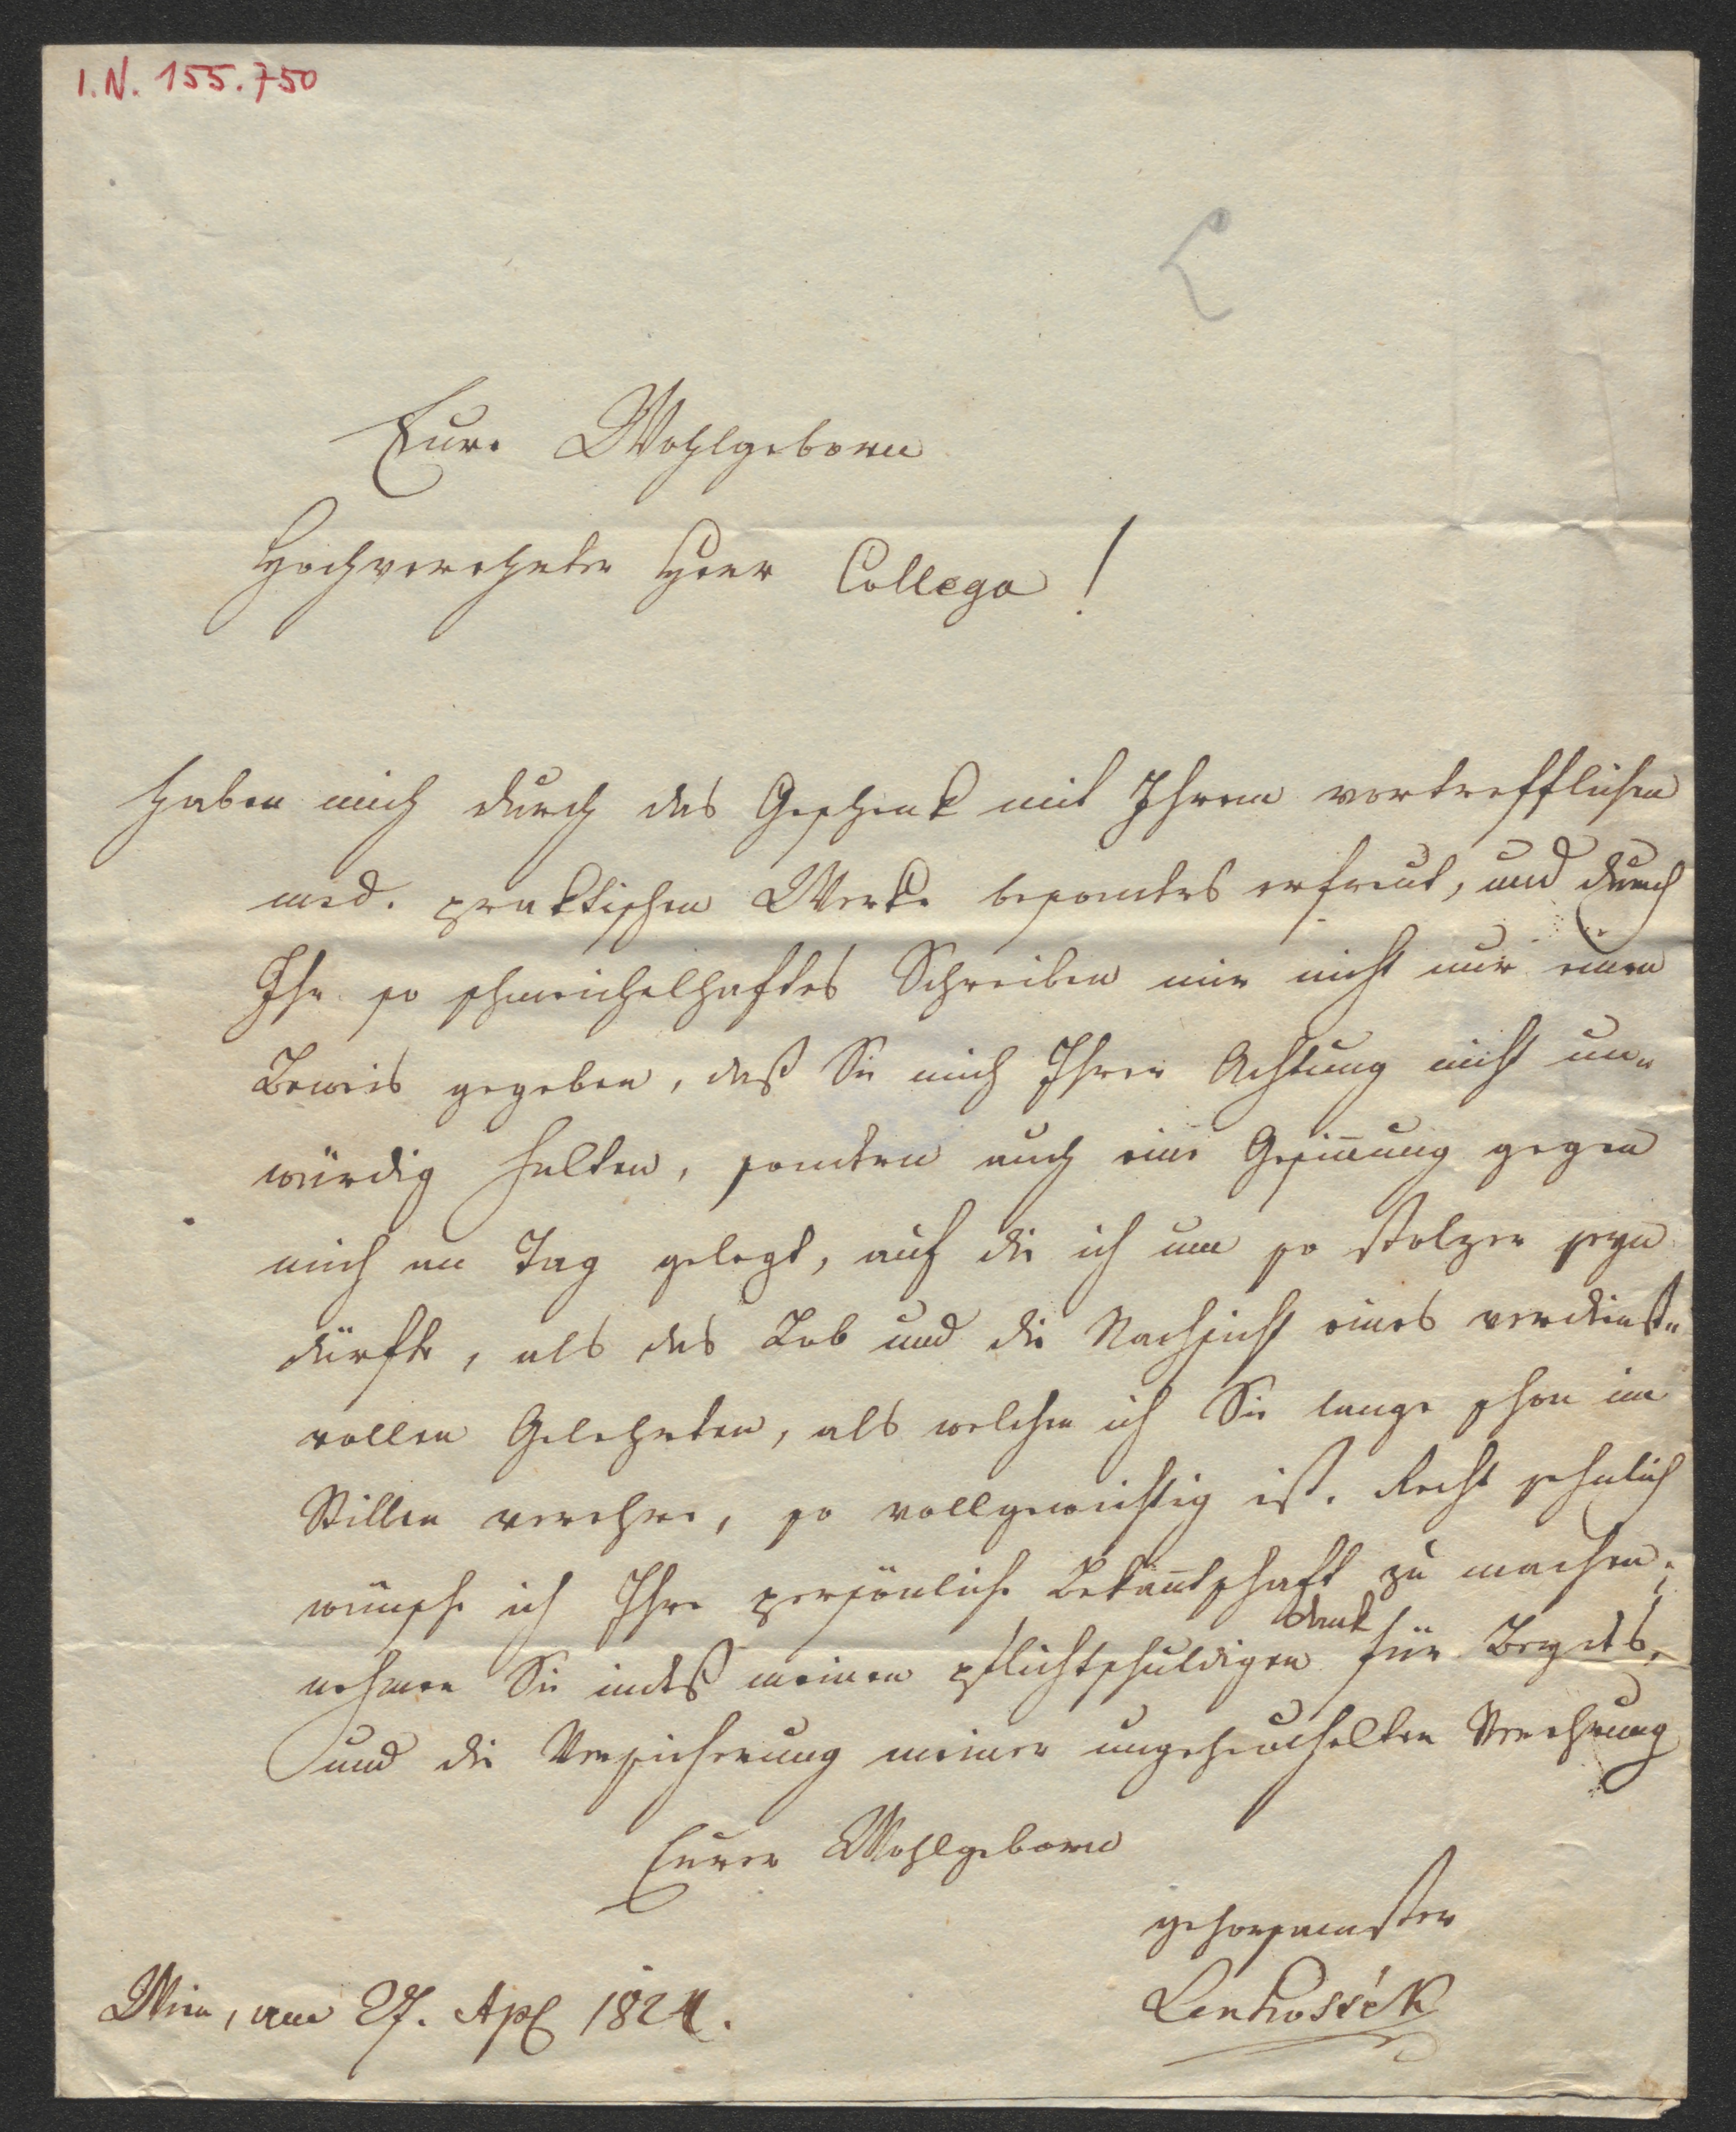 I.N. 155.750
L
Eure Wohlgeborn
Hochverehrter Herr Collega!
haben mich durch das Geschenk mit Ihrem vortrefflichen
med. praktischen Werke besonders erfreut, und durch
Ihr so schmeichelhaftes Schreiben mir nicht nur einen
Beweis gegeben, daß Sie mich Ihrer Achtung nicht un-
würdig halten, sondern auch eine Gesin̄ung gegen
mich an Tag gelegt, auf die ich um so stolzer seyn
dürfte, als das Lob und die Nachsicht eines verdienst-
vollen Gelehrten, als welchen ich Sie lange schon im
Stillen verehre, so vollgewichtig ist. Recht sehnlich
wünsche ich Ihre persönliche Bekan̄tschaft zu machen;
nehmen Sie indeß meinen pflichtschuldigen Dank für Beydes,
und die Versicherung meiner ungeheuchelten Verehrung
Eurer Wohlgeborn
gehorsamster
Lenhossék
Wien, am 27. Apl 1824.